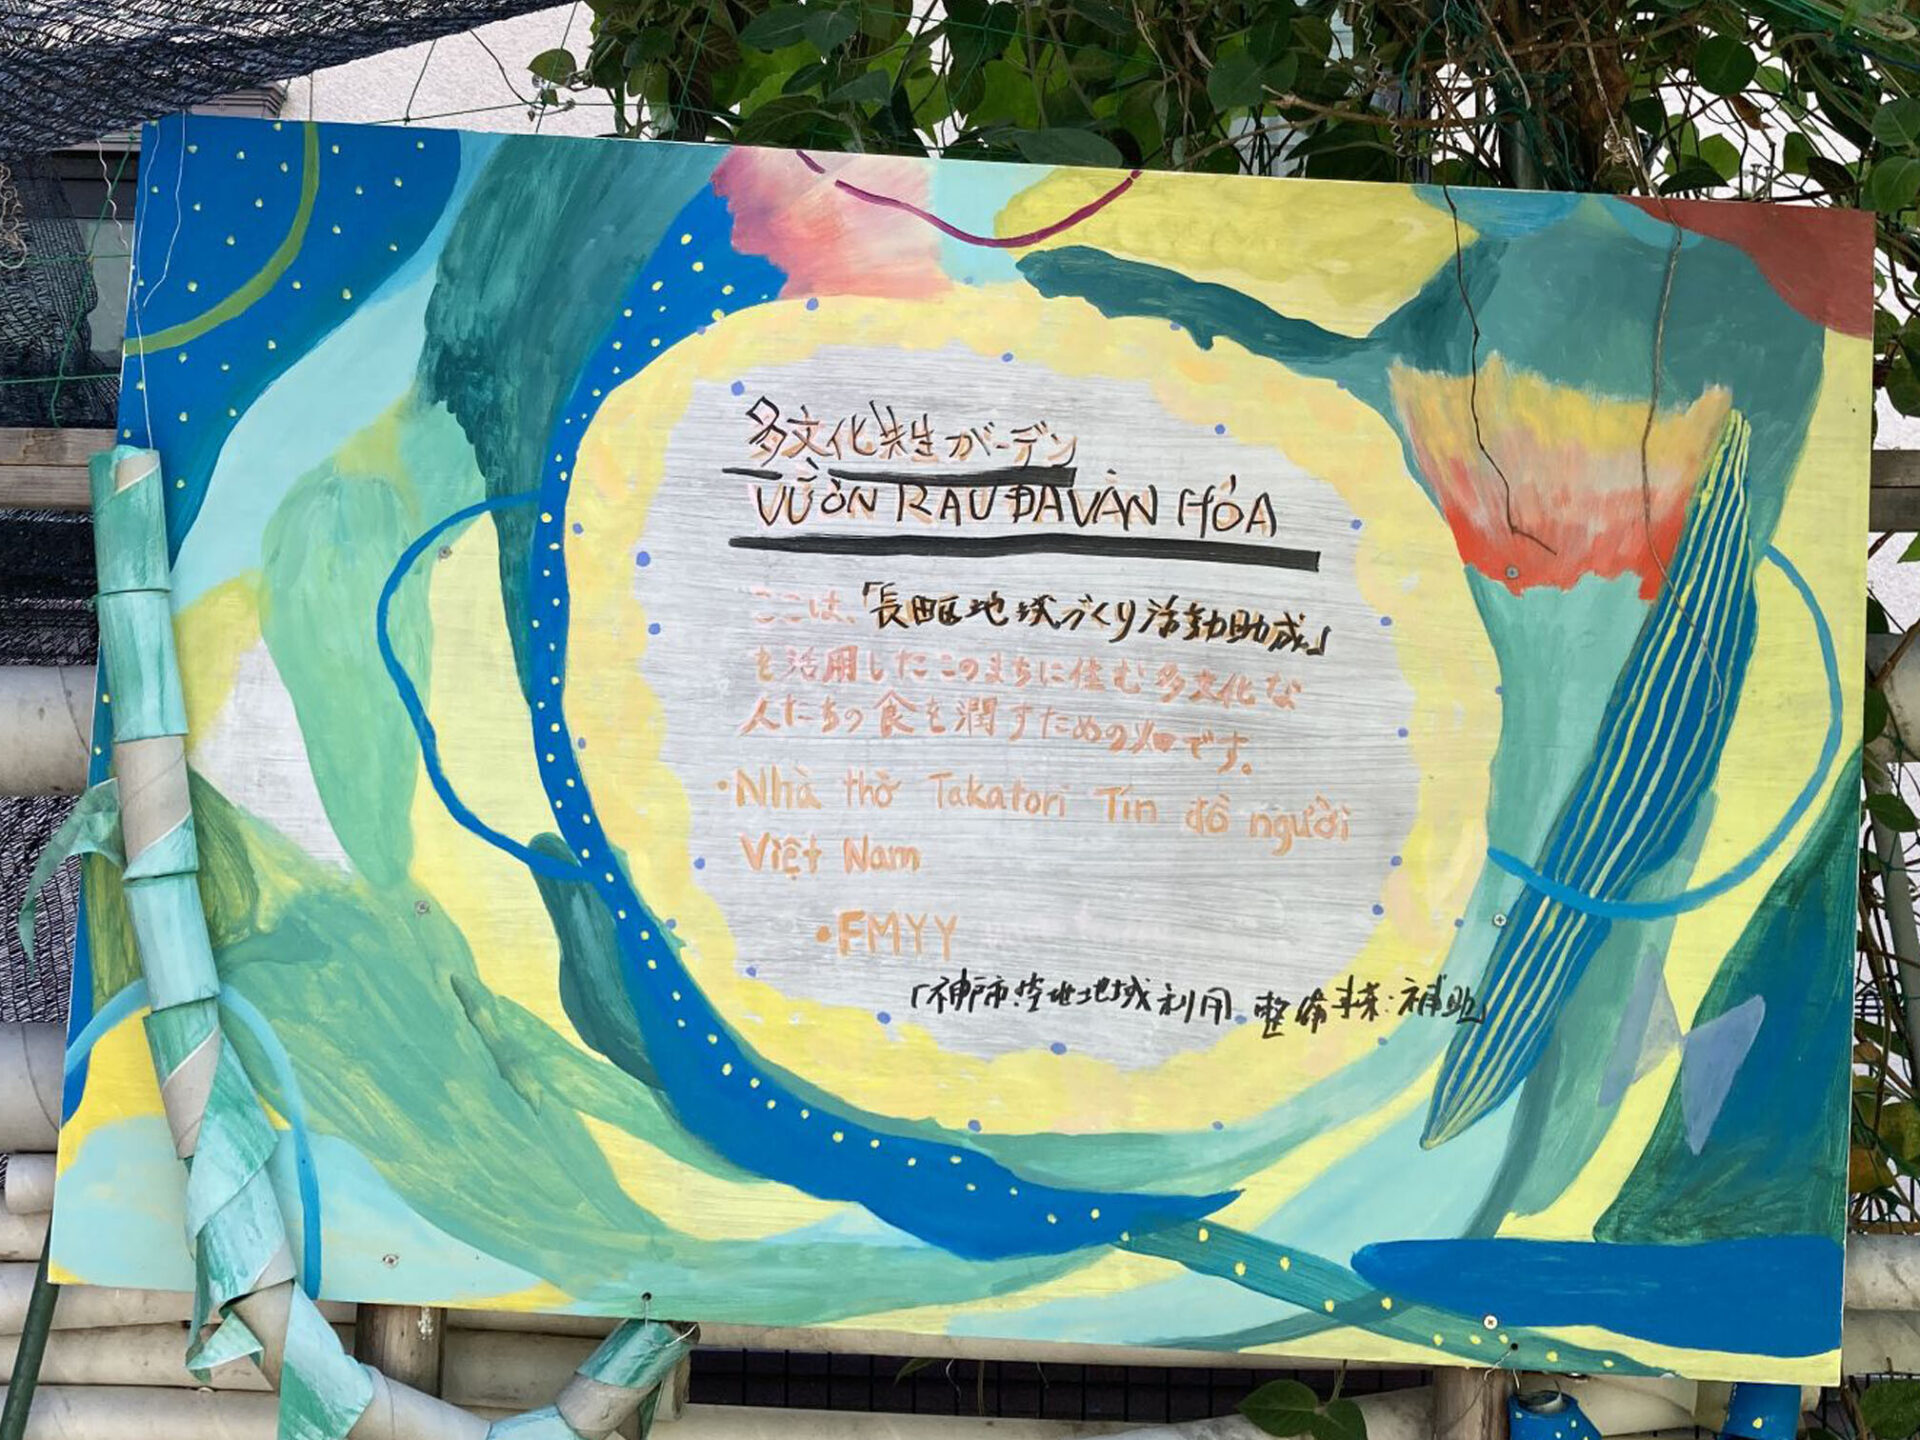 多文化共生ガーデン
VƯỜN RAU ĐA VĂN HÓA
ここは、「長田区地域づくり活動助成」
を活用したこのまちに住む多文化な
人たちの食を潤すための畑です。
・Nhà thờ Takatori Tín đồ người
Việt Nam
・FMYY
「神戸市空地地域利用 整備事業:補助」